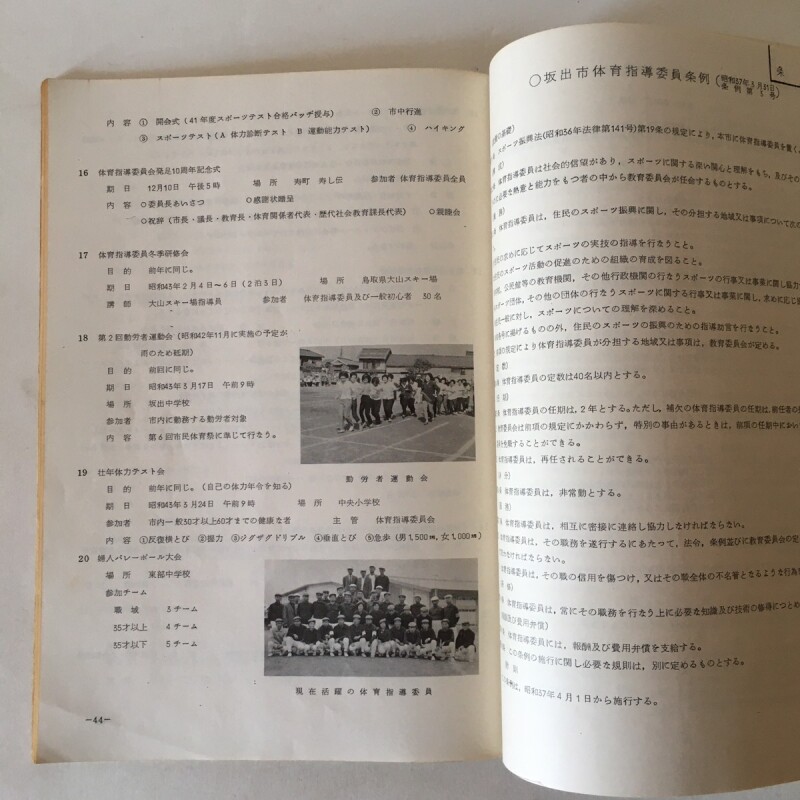 内容 ① 開会式(41年度スポーツテスト合格バッヂ授与) ② 市中行進
③ スポーツテスト(A 体力診断テスト B 運動能力テスト) ④ ハイキング
16 体育指導委員会発足10周年記念式
期日 12月10日 午後5時 場所 寿町 寿し伝 参加者 体育指導委員全員
内容 ○委員長あいさつ ○感謝状贈呈
○祝辞(市長・議長・教育長・体育関係者代表・歴代社会教育課長代表) ○親睦会
17 体育指導委員冬季研修会
目的 前年に同じ。
期日 昭和43年2月4日〜6日(2泊3日) 場所 鳥取県大山スキー場
講師 大山スキー場指導員 参加者 体育指導委員及び一般初心者 30名
18 第2回勤労者運動会(昭和42年11月に実施の予定が
雨のため延期)
目的 前回に同じ。
期日 昭和43年3月17日 午前9時
場所 坂出中学校
参加者 市内に勤務する勤労者対象
内容 第6回市民体育祭に準じて行なう。
勤労者運動会
19 壮年体力テスト会
目的 前年に同じ。(自己の体力年令を知る)
期日 昭和43年3月24日 午前9時 場所 中央小学校
参加者 市内一般30才以上60才までの健康な者 主管 体育指導委員会
内容 ①反復横とび ②握力 ③ジグザグドリブル ④垂直とび ⑤急歩(男1,500m,女1,000m)
20 婦人バレーボール大会
場所 東部中学校
参加チーム
職域 3チーム
35才以上 4チーム
35才以下 5チーム
現在活躍の体育指導委員
-44-
○坂出市体育指導委員条例(昭和37年3月31日
条例第5号)
条
スポーツ振興法(昭和36年法律第141号)第19条の規定により,本市に体育指導委員を置く。
体育指導委員は社会的信望があり,スポーツに関する深い関心と理解をもち,及びその
に必要な熱意と能力をもつ者の中から教育委員会が任命するものとする。
体育指導委員は,住民のスポーツ振興に関し,その分担する地域又は事項について次の
求めに応じてスポーツの実技の指導を行なうこと。
スポーツ活動の促進のための組織の育成を図ること。
公民館等の教育機関,その他行政機関の行なうスポーツの行事又は事業に関し協力
スポーツ団体,その他の団体の行なうスポーツに関する行事又は事業に関し,求めに応じ
一般に対し,スポーツについての理解を深めること。
に掲げるものの外,住民のスポーツの振興のための指導助言を行なうこと。
の規定により体育指導委員が分担する地域又は事項は,教育委員会が定める。
体育指導委員の定数は40名以内とする。
体育指導委員の任期は,2年とする。ただし,補欠の体育指導委員の任期は,前任者の
委員会は前項の規定にかかわらず,特別の事由があるときは,前項の任期中におい
を免職することができる。
委員は,再任されることができる。
体育指導委員は,非常勤とする。
体育指導委員は,相互に密接に連絡し協力しなければならない。
体育指導委員は,その職務を遂行するにあたって,法令,条例並びに教育委員会の定
なければならない。
委員は,その職の信用を傷つけ,又はその職全体の不名誉となるような行為
体育指導委員は,常にその職務を行なう上に必要な知識及び技術の修得につとめ
及び費用弁償)
体育指導委員には,報酬及び費用弁償を支給する。
この条例の施行に関し必要な規則は,別に定めるものとする。
則
は,昭和37年4月1日から施行する。